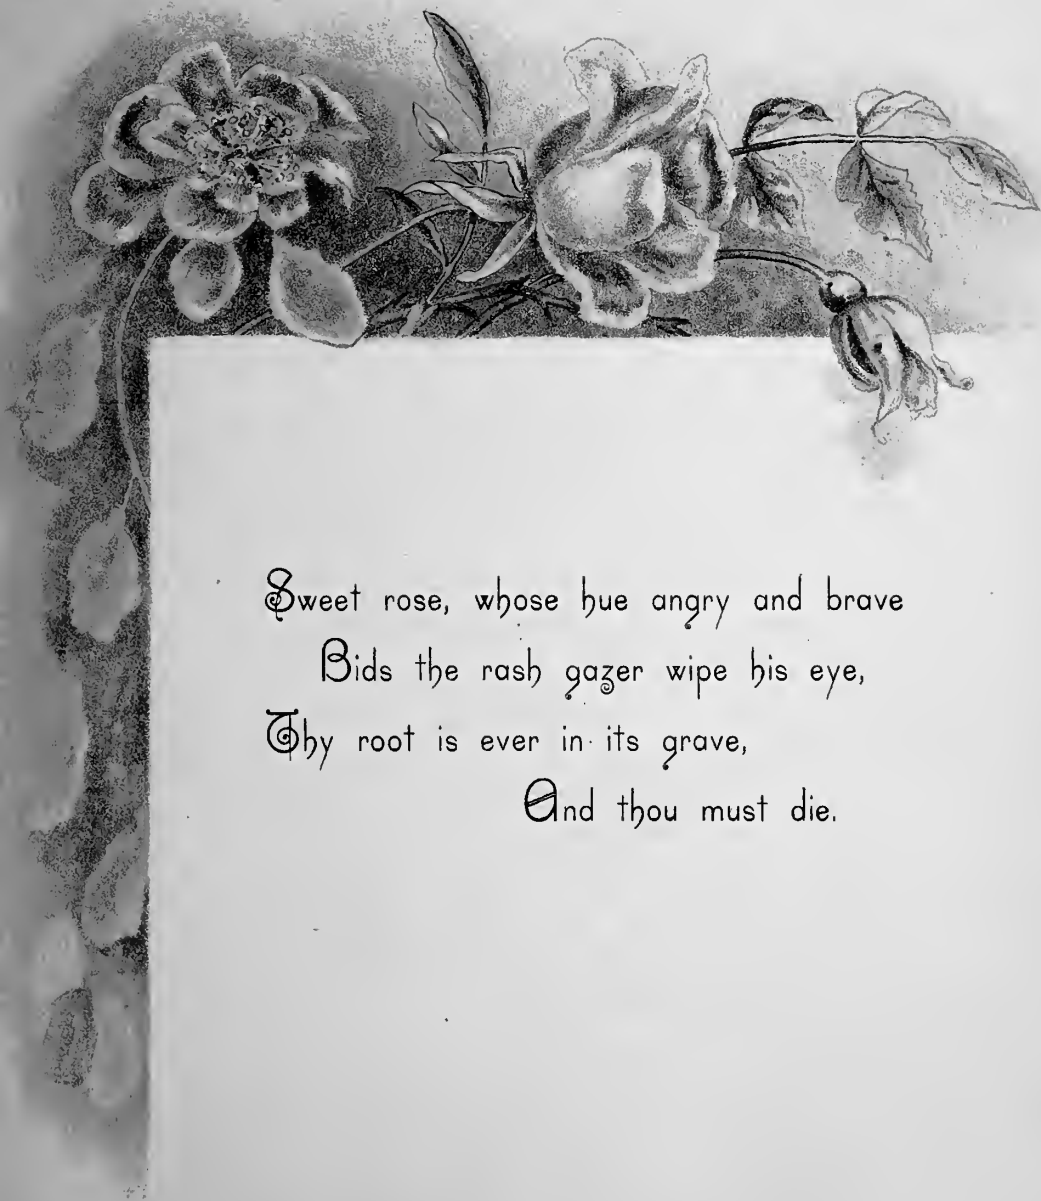 Sweet rose, whose hue angry and brave
Bids the rash gazer wipe his eye,
Thy root is ever in its grave,
And thou must die.